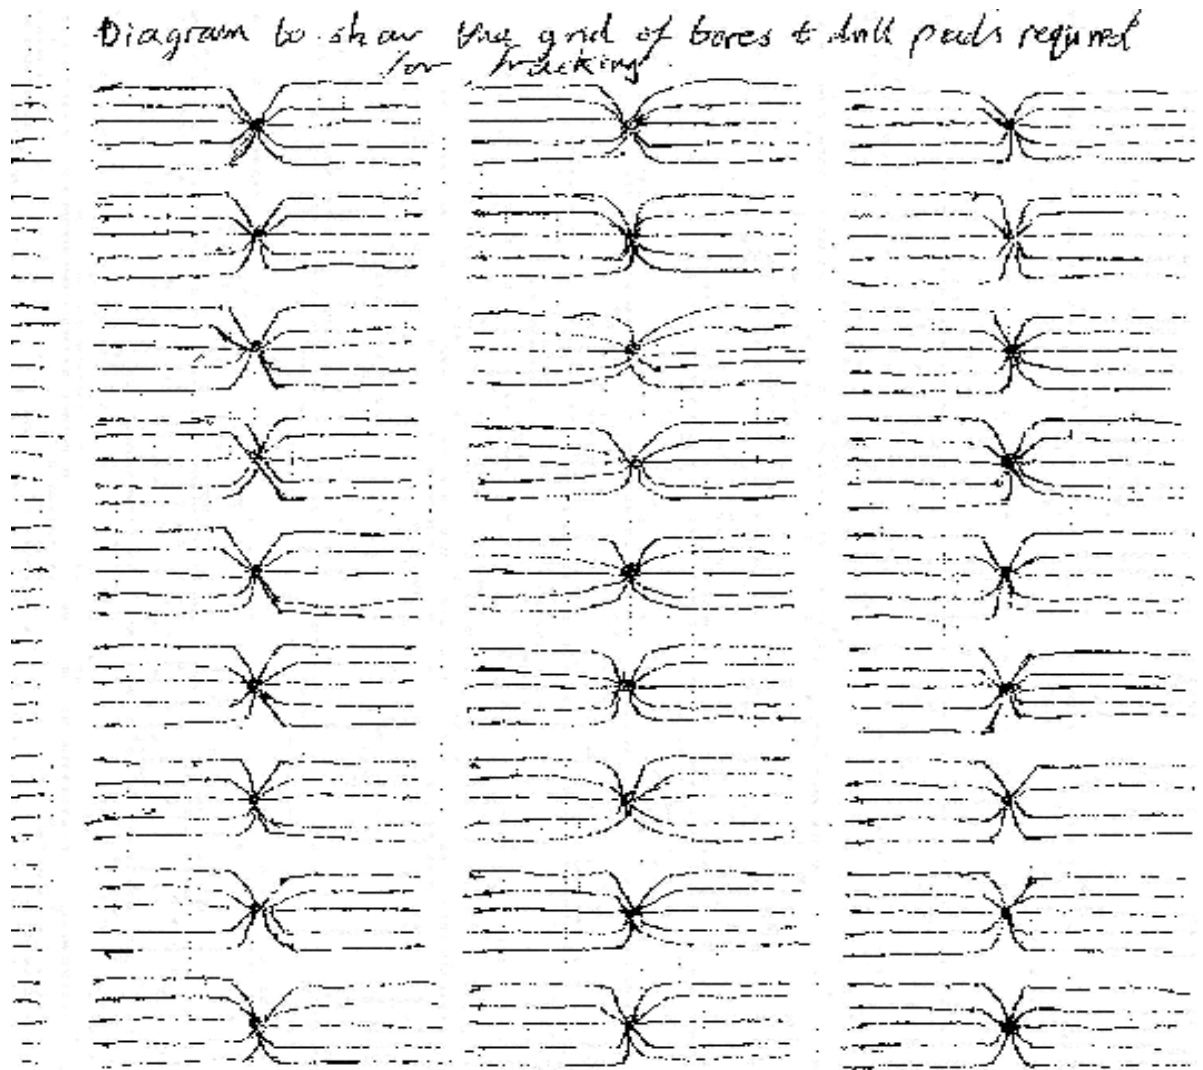 Diagram to show the grid of bores & drill pads required
for fracking